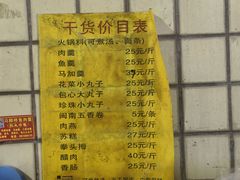 干货价目表
火锅料(可煮汤、面条)
肉羹 25元/斤
鱼羹 25元/斤
马加羹 35元/斤
花菜小丸子 25元/斤
包心大丸子 25元/斤
珍珠小丸子 25元/斤
闽南五香卷 5元/条
肉燕 25元/斤
苏糕 27元/斤
拳头姆 25元/斤
醋肉 40元/斤
香肠 25元/斤